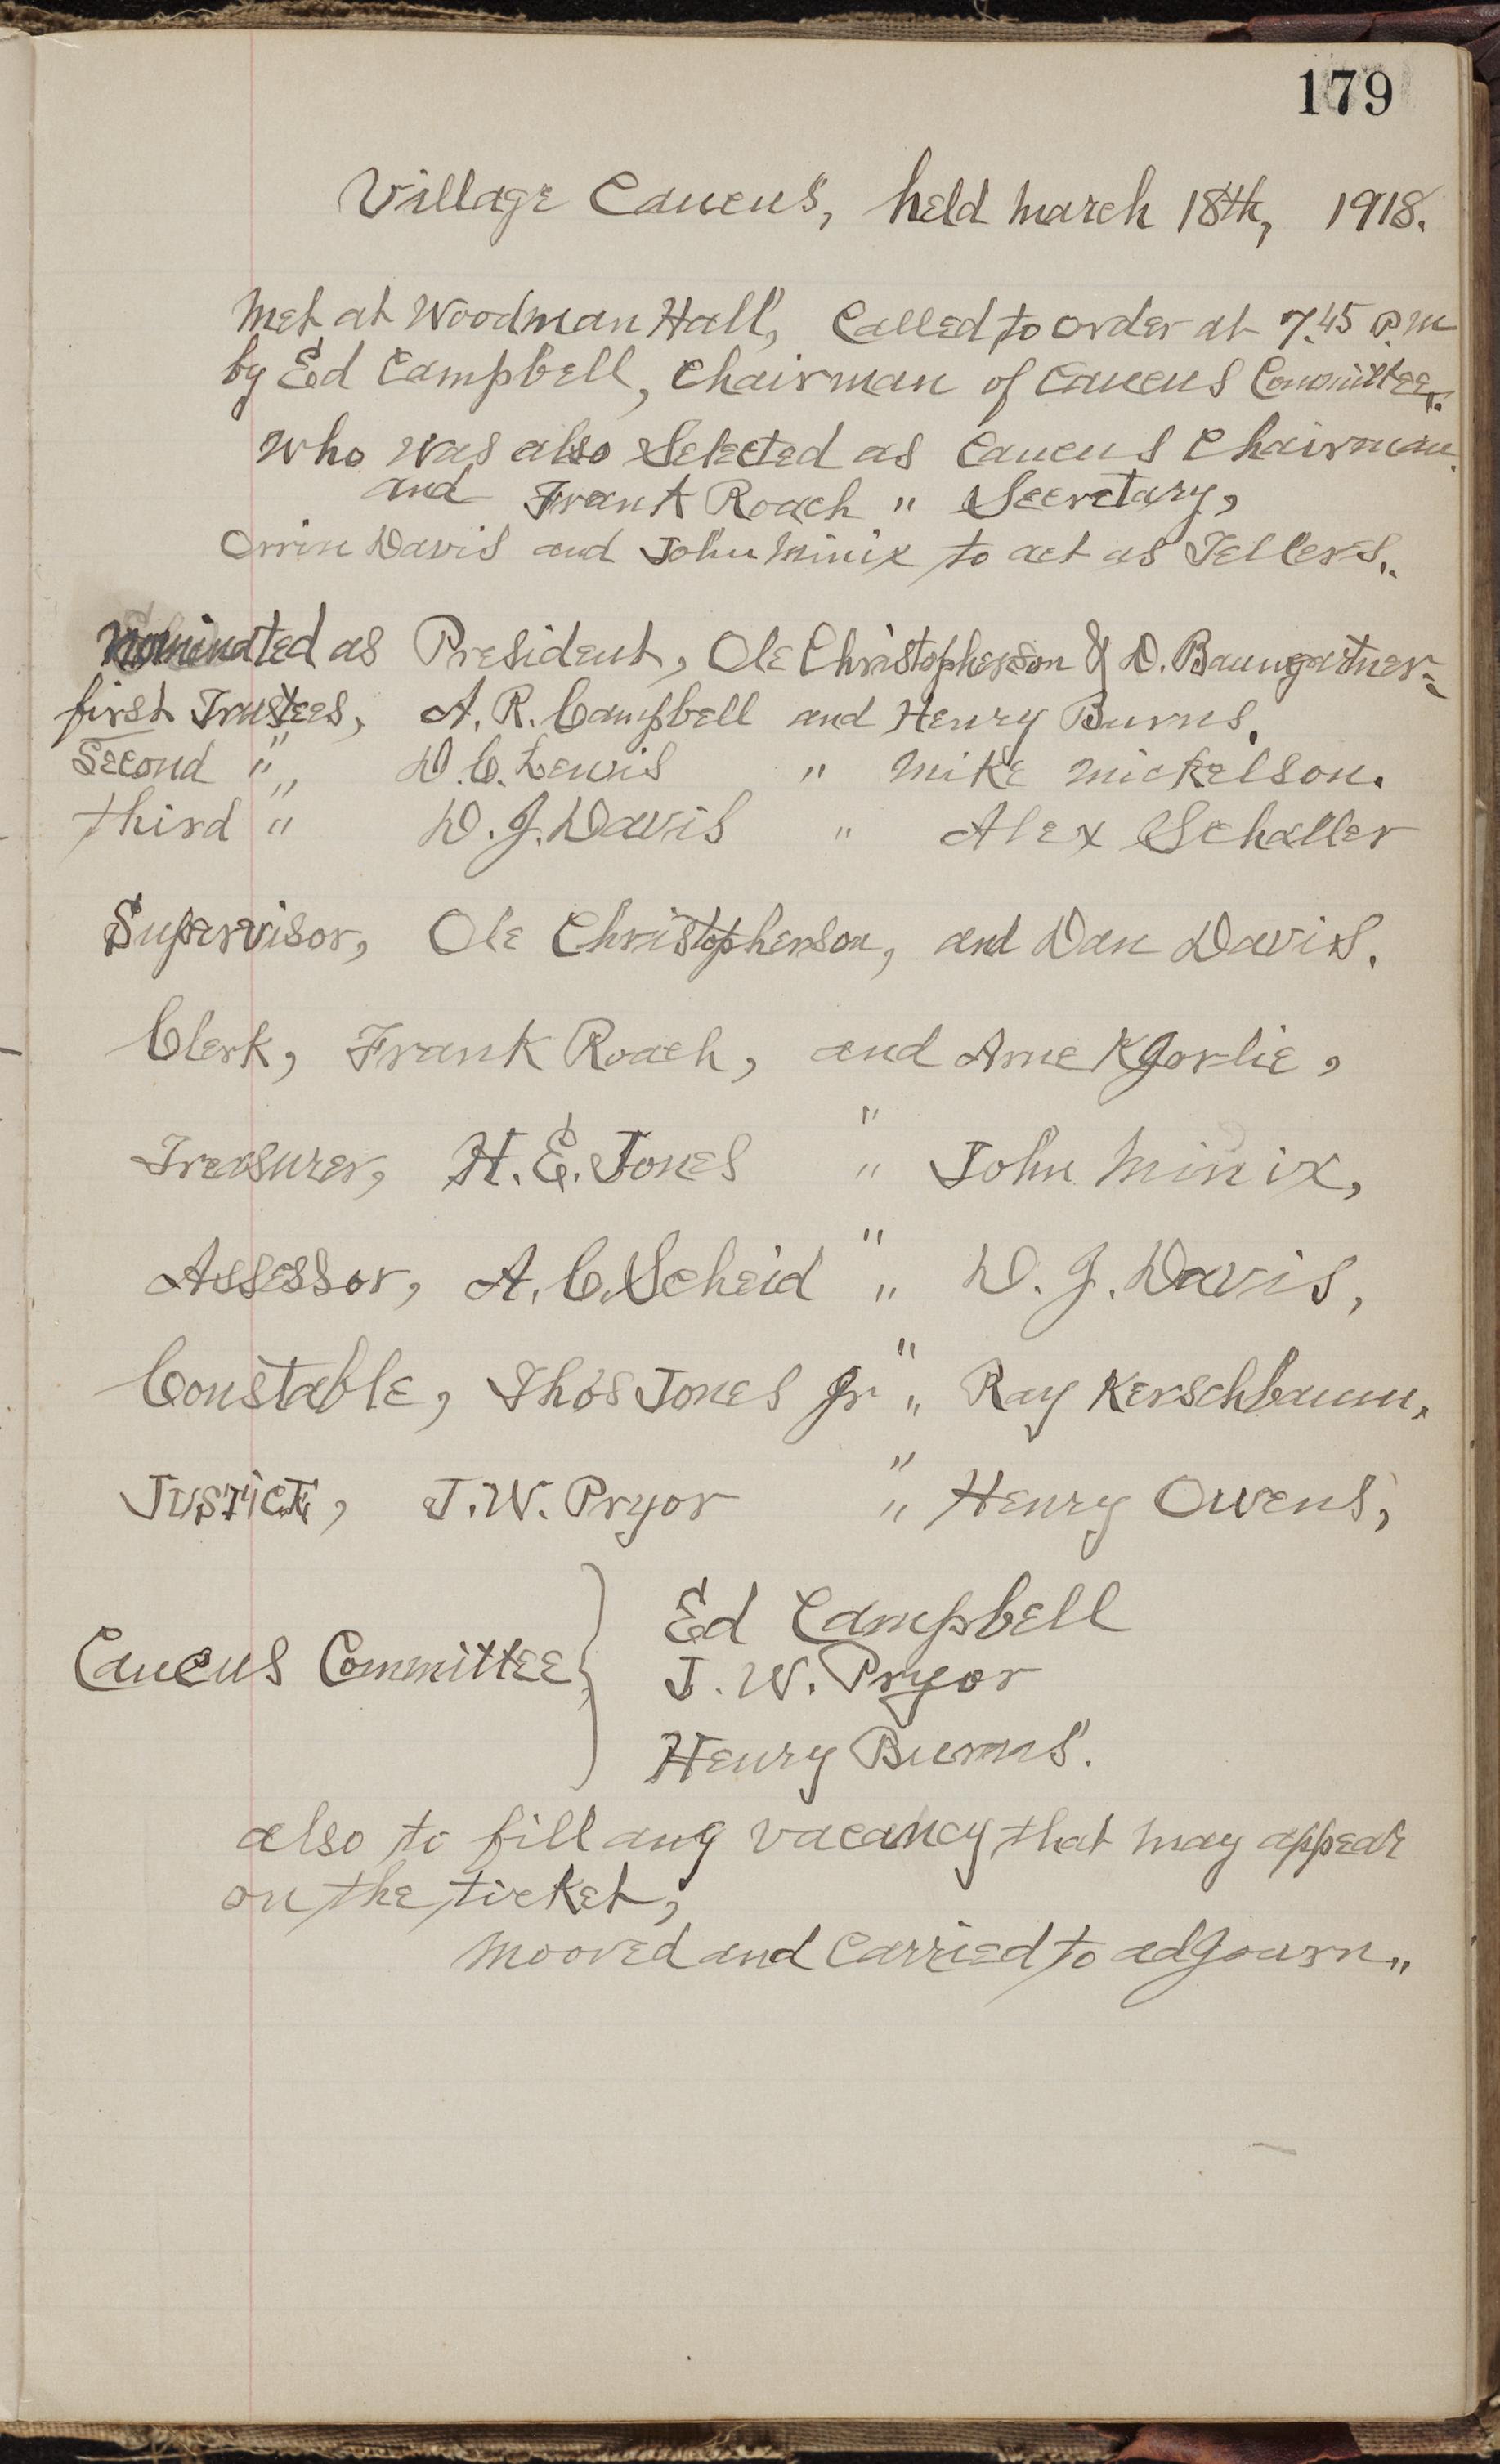 179
Village Caucus, held March 18th, 1918.
Met at Woodman Hall, Called to order at 7.45 P.M
by Ed Campbell, Chairman of Caucus Committee.
Who was also Selected as Caucus Chairman.
and Frank Roach " Secretary,
Orrin Davis and John Minix to act as Tellers.
Nominated as President, Ole Christopherson & D. Baumgartner.
first Trustees, A. R. Campbell and Henry Burns.
Second " D. C. Lewis " Mike Mickelson.
third " D. J. Davis " Alex Schaller
Supervisor, Ole Christopherson, and Dan Davis.
Clerk, Frank Roach, and Arne Kjorlie,
"
Treasurer, H. E. Jones " John Minix,
"
Assessor, A. C. Scheid " D. J. Davis,
"
Constable, Thos Jones Jr " Ray Kerschbaum,
"
Justice, J. W. Pryor " Henry Owens,
Caucus Committee } Ed Campbell
J. W. Pryor
Henry Burns.
also to fill any vacancy that may appear
on the ticket,
Mooved and Carried to adjourn"